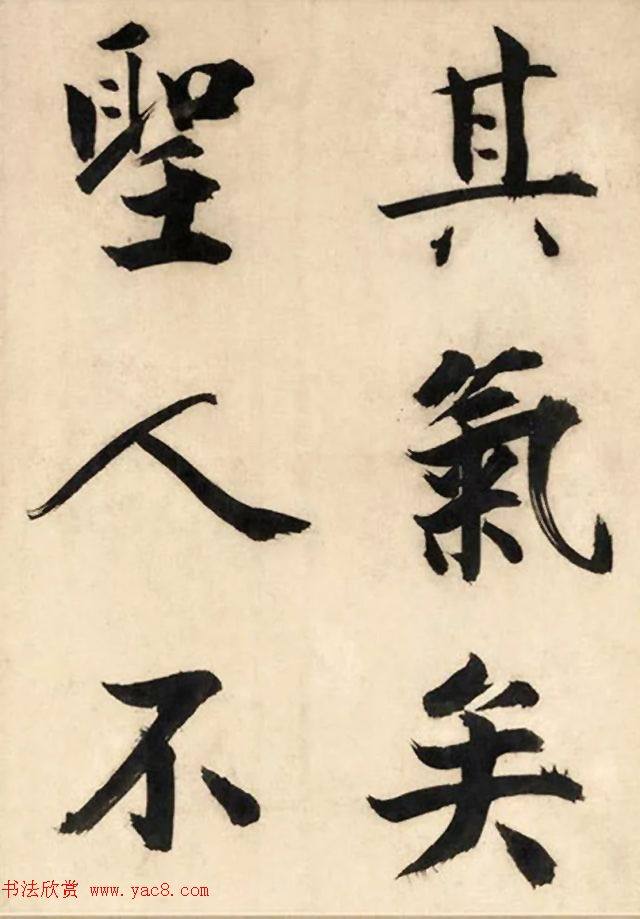 其氣矣
聖人不
书法欣赏 www.yac8.com